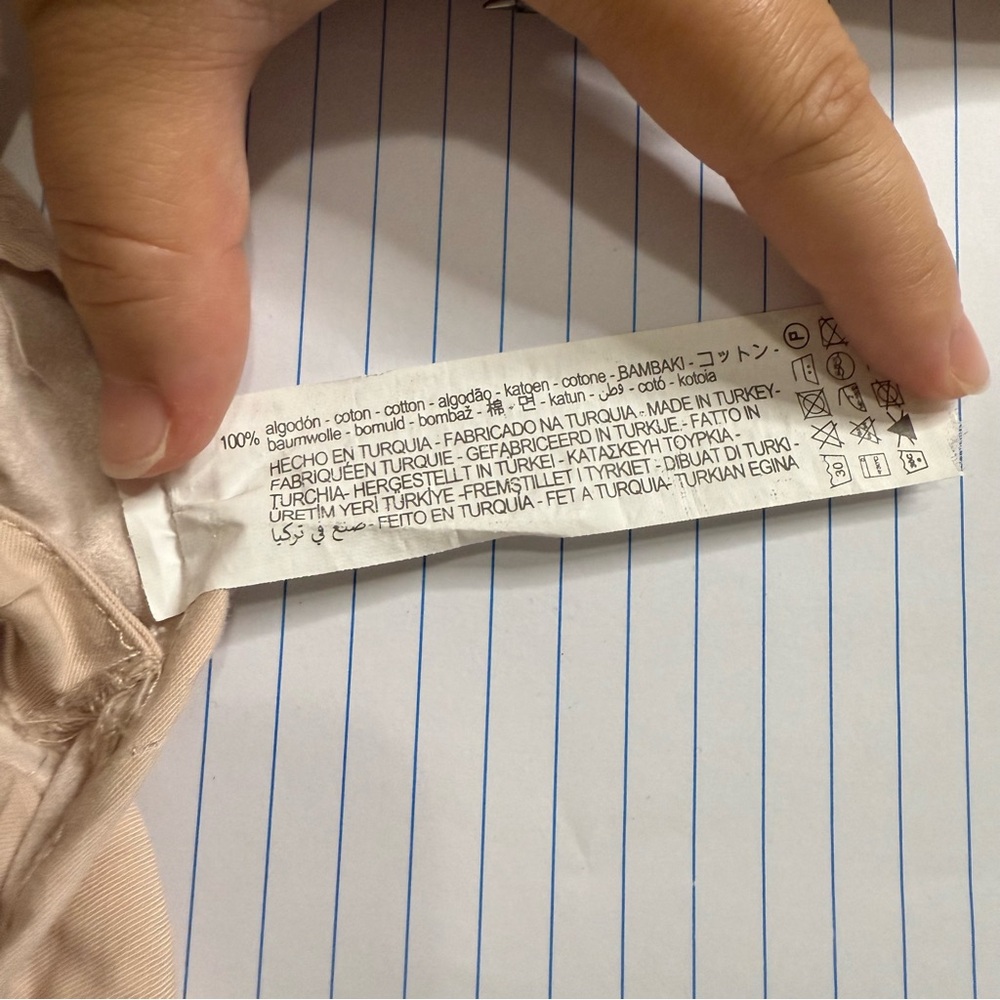 100% algodón - coton - cotton - algodão - katoen - cotone - BAMBAKI - コットン -
baumwolle - bomuld - bombaž - 棉 - 면 - katun - قطن - cotó - kotoia
HECHO EN TURQUIA - FABRICADO NA TURQUIA - MADE IN TURKEY-
FABRIQUÉEN TURQUIE - GEFABRICEERD IN TURKIJE - FATTO IN
TURCHIA- HERGESTELLT IN TÜRKEI - ΚΑΤΑΣΚΕΥΗ ΤΟΥΡΚΙΑ -
ÜRETİM YERİ TÜRKİYE -FREMSTILLET I TYRKIET - DIBUAT DI TURKI -
صنع في تركيا - FEITO EN TURQUÍA - FET A TURQUIA- TURKIAN EGINA
P
30